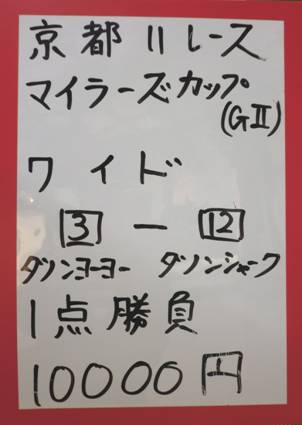 京都11レース
マイラーズカップ
(GⅡ)
ワイド
3 — 12
ダノンヨーヨー ダノンシャーク
1点勝負
10000円